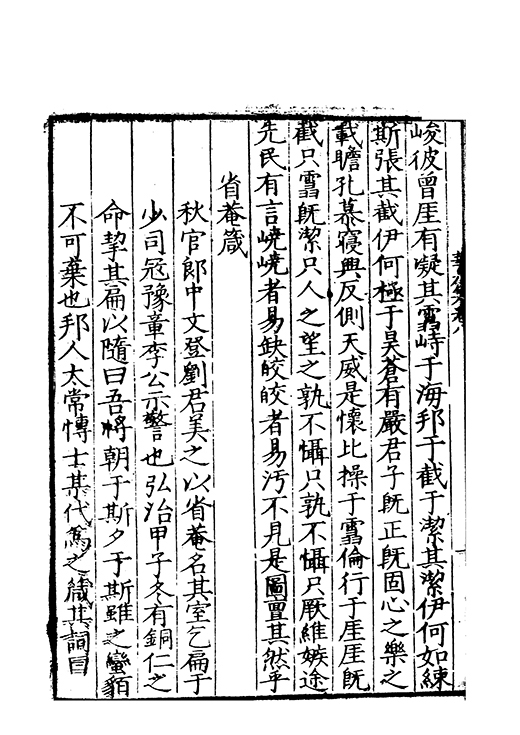 峻彼曾厓有凝其雪峙于海邦于截于潔其潔伊何如練
斯張其截伊何極于昊蒼有嚴君子旣正旣固心之樂之
載瞻孔慕寢興反側天威是懷比操于雪倫行于厓厓旣
截只雪旣潔只人之望之孰不懾只孰不懾只厥維嫉途
先民有言嶢嶢者易缺皎皎者易汚不見是圖亶其然乎
省菴箴
秋官郎中文登劉君美之以省菴名其室乞扁于
少司冦豫章李公示警也弘治甲子冬有銅仁之
命挈其扁以隨曰吾將朝于斯夕于斯雖之蠻貊
不可棄也邦人太常愽士某代爲之箴其詞曰